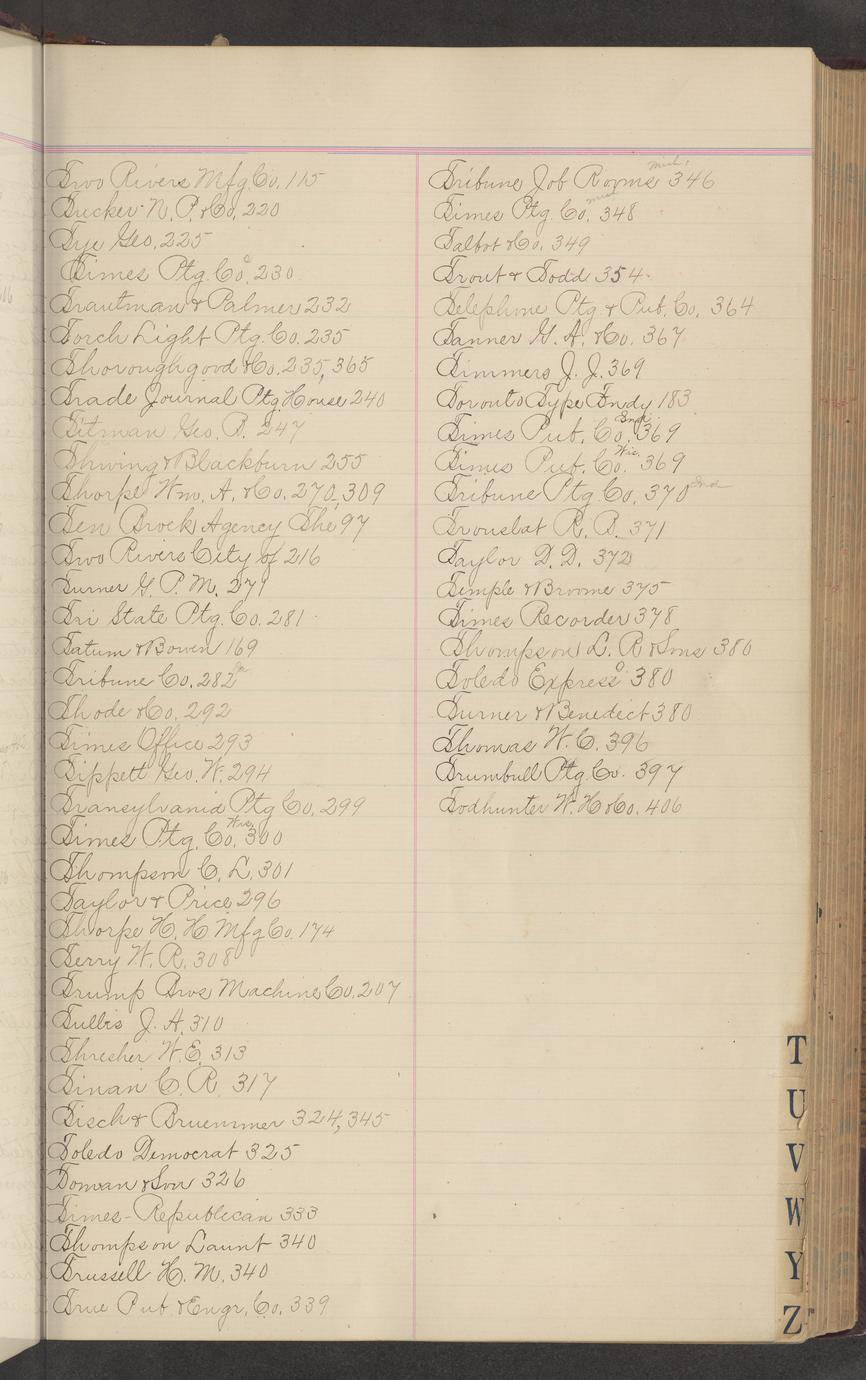 Two Rivers Mfg. Co. 115
Tucker N. P. & Co. 220
Tye Geo. 225
Times Ptg. Co. O 230
Trautman & Palmer 232
Torch Light Ptg. Co. 235
Thoroughgood & Co. 235, 365
Trade Journal Ptg. House 240
Titman Geo. B. 247
Thwing & Blackburn 255
Thorpe Wm. A. & Co. 270, 309
Ten Brock Agency The 97
Two Rivers City of 216
Turner G. P. M. 271
Tri State Ptg. Co. 281
Tatum & Bowen 169
Tribune Co. 282 Ia
Thode & Co. 292
Times Office 293
Tippett Geo. W. 294
Transylvania Ptg Co. 299
Times Ptg. Co. Wis. 300
Thompson C. L. 301
Taylor & Price 296
Thorpe H. H. Mfg Co. 174
Terry W. R. 308
Trump Bros Machine Co. 207
Tullis J. A. 310
Thresher W. E. 313
Tinan C. R. 317
Tisch & Bruemmer 324, 345
Toledo Democrat 325
Toman & Son 326
Times-Republican 333
Thompson Launt 340
Trussell H. M. 340
True Pub. & Engr. Co. 339
Tribune Job Rooms Mich. 346
Times Ptg. Co. Mich 348
Talbot & Co. 349
Trout & Todd 354
Telephone Ptg & Pub. Co. 364
Tanner G. A. & Co. 367
Timmers J. J. 369
Toronto Type Fndy 183
Times Pub. Co. Ind. 369
Times Pub. Co. Wis. 369
Tribune Ptg. Co. 370 Ind
Trouslat R. B. 371
Taylor D. D. 372
Temple & Broome 375
Times Recorder 378
Thompson L. R. & Sons 380
Toledo Express O 380
Turner & Benedict 380
Thomas W. C. 396
Trumbull Ptg. Co. 397
Todhunter W. H. & Co. 406
T
U
V
W
Y
Z